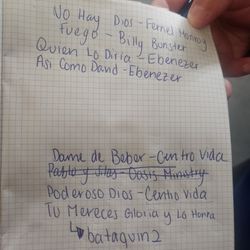 No Hay Dios - Fernel Monroy
Fuego - Billy Bunster
Quien Lo Diria - Ebenezer
Asi Como David - Ebenezer
Dame de Beber - Centro Vida
Pablo y Silas - Oasis Ministry
Poderoso Dios - Centro Vida
Tu Mereces Gloria y Lo Honra
bataquin2